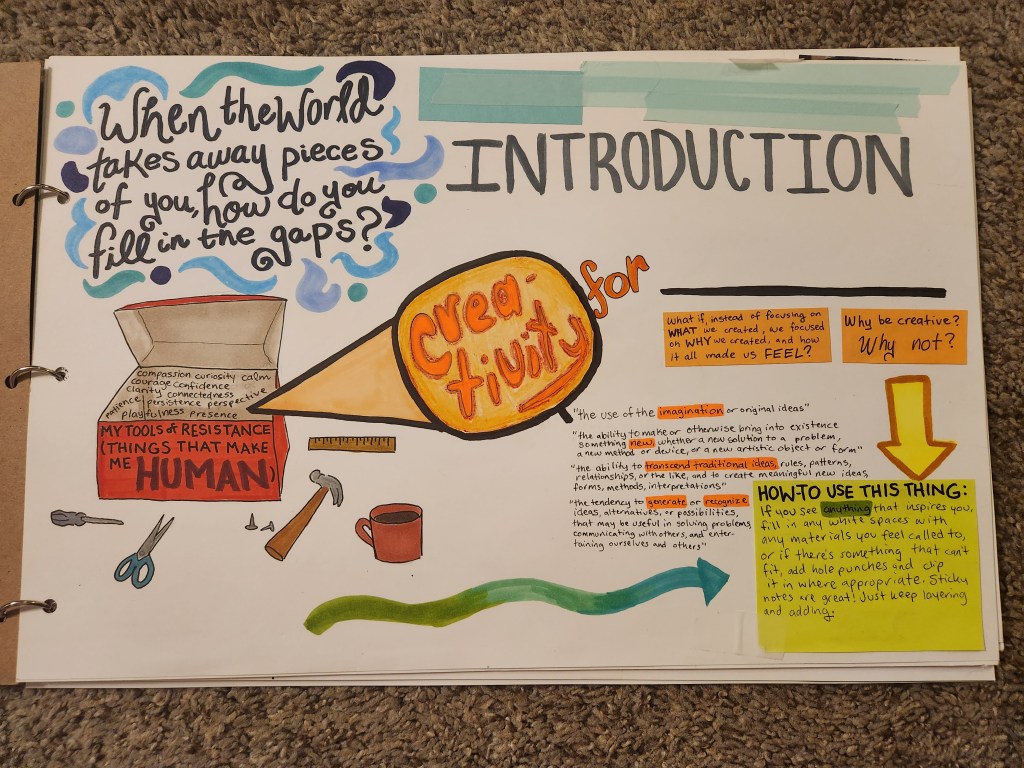 When the World
takes away pieces
of you, how do you
fill in the gaps?
INTRODUCTION
crea-
tivity
for
What if, instead of focusing on
WHAT we created, we focused
on WHY we created, and how
it all made us FEEL?
Why be creative?
Why not?
compassion curiosity calm
courage confidence
clarity connectedness
patience persistence perspective
playfulness presence
MY TOOLS of RESISTANCE
(THINGS THAT MAKE
ME HUMAN)
"the use of the imagination or original ideas"
"the ability to make or otherwise bring into existence
something new, whether a new solution to a problem,
a new method or device, or a new artistic object or form"
"the ability to transcend traditional ideas, rules, patterns,
relationships, or the like, and to create meaningful new ideas,
forms, methods, interpretations"
"the tendency to generate or recognize
ideas, alternatives, or possibilities,
that may be useful in solving problems,
communicating with others, and enter-
taining ourselves and others"
HOW-TO USE THIS THING:
If you see anything that inspires you,
fill in any white spaces with
any materials you feel called to,
or if there's something that can't
fit, add hole punches and clip
it in where appropriate. Sticky
notes are great! Just keep layering
and adding.